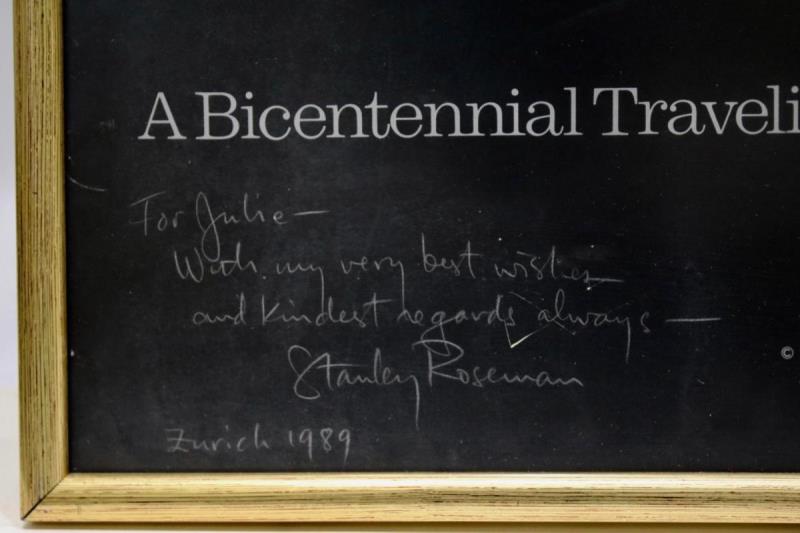 A Bicentennial Traveli
For Julie —
With my very best wishes
and kindest regards always —
©
Stanley Roseman
Zurich 1989